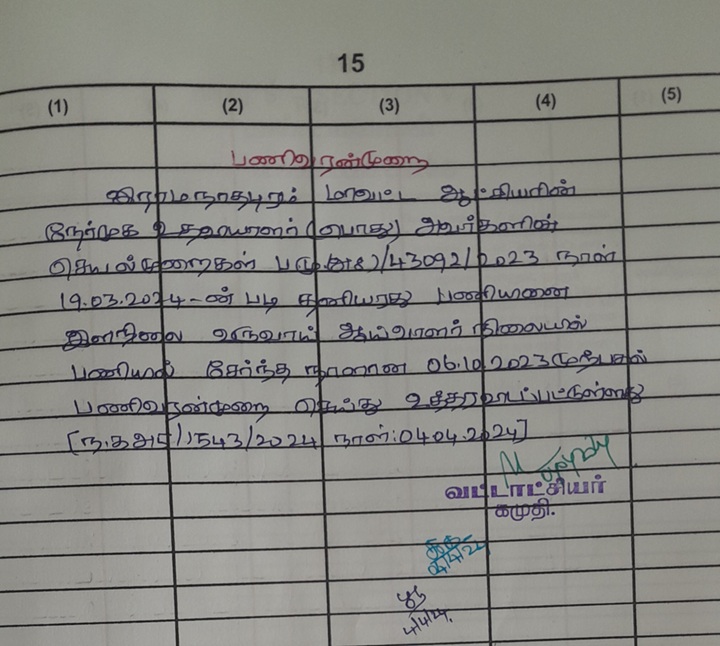 15
(1) (2) (3) (4) (5)
பணிவரன்முறை
இராமநாதபுரம் மாவட்ட ஆட்சியரின்
நேர்முக உதவியாளர் (பொது) அவர்களின்
செயல்முறைகள் /43092/2023 நாள்
19.03.2024-ன் படி தனியரது பணியினை
இளநிலை வருவாய் ஆய்வாளர் நிலையில்
பணியில் சேர்ந்த நாளான 06.10.2023 முதல்
பணிவரன்முறை செய்து உத்தரவிடப்பட்டுள்ளது
/1543/2024 நாள்:04.04.2024]
வட்டாட்சியர்
கமுதி.
4/4/24.